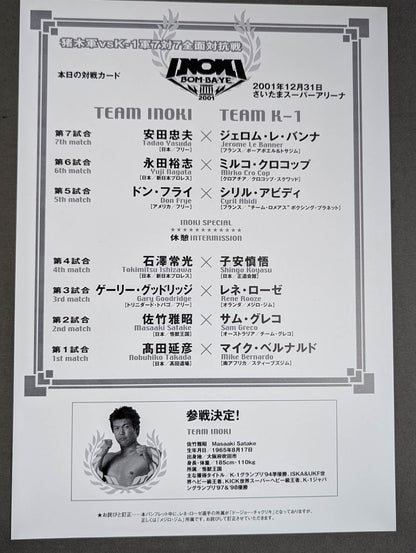 猪木軍vsK-1軍7対7全面対抗戦
INOKI
BOM-BA-YE
2001
本日の対戦カード
2001年12月31日
さいたまスーパーアリーナ
TEAM INOKI
TEAM K-1
第7試合
7th match
安田忠夫 × ジェロム・レ・バンナ
Tadao Yasuda
Jerome Le Banner
[日本／フリー]
[フランス／ボーアボエル&トサジム]
第6試合
6th match
永田裕志 × ミルコ・クロコップ
Yuji Nagata
Mirko Cro Cop
[日本／新日本プロレス]
[クロアチア／クロコップ・スクワッド]
第5試合
5th match
ドン・フライ × シリル・アビディ
Don Frye
Cyril Abidi
[アメリカ／フリー]
[フランス／“チーム・ロメアス”ボクシング・ブラネット]
INOKI SPECIAL
★★★★★★★★★★★★
休憩 INTERMISSION
第4試合
4th match
石澤常光 × 子安慎悟
Tokimitsu Ishizawa
Shingo Koyasu
[日本／新日本プロレス]
[日本／正道会館]
第3試合
3rd match
ゲーリー・グッドリッジ × レネ・ローゼ
Gary Goodridge
Rene Rooze
[トリニダード・トバゴ／フリー]
[オランダ／メジロ・ジム]
第2試合
2nd match
佐竹雅昭 × サム・グレコ
Masaaki Satake
Sam Greco
[日本／怪獣王国]
[オーストラリア／チーム・グレコ]
第1試合
1st match
髙田延彦 × マイク・ベルナルド
Nobuhiko Takada
Mike Bernardo
[日本／高田道場]
[南アフリカ／スティーブズジム]
参戦決定!
TEAM INOKI
佐竹雅昭 Masaaki Satake
生年月日／1965年8月17日
出身地／大阪府吹田市
身長・体重／185cm・110kg
所属／怪獣王国
主な獲得タイトル／K-1グランプリ94準優勝、ISKA&UKF世
界ヘビー級王者、KICK世界スーパーヘビー級王者、K-1ジャパ
ングランプリ'97&'98優勝
★お詫びと訂正……本パンフレット中に、レネ・ローゼ選手の所属が「ドージョー・チャクリキ」となっておりますが、
正しくは「メジロ・ジム」所属です。お詫びして訂正させていただきます。